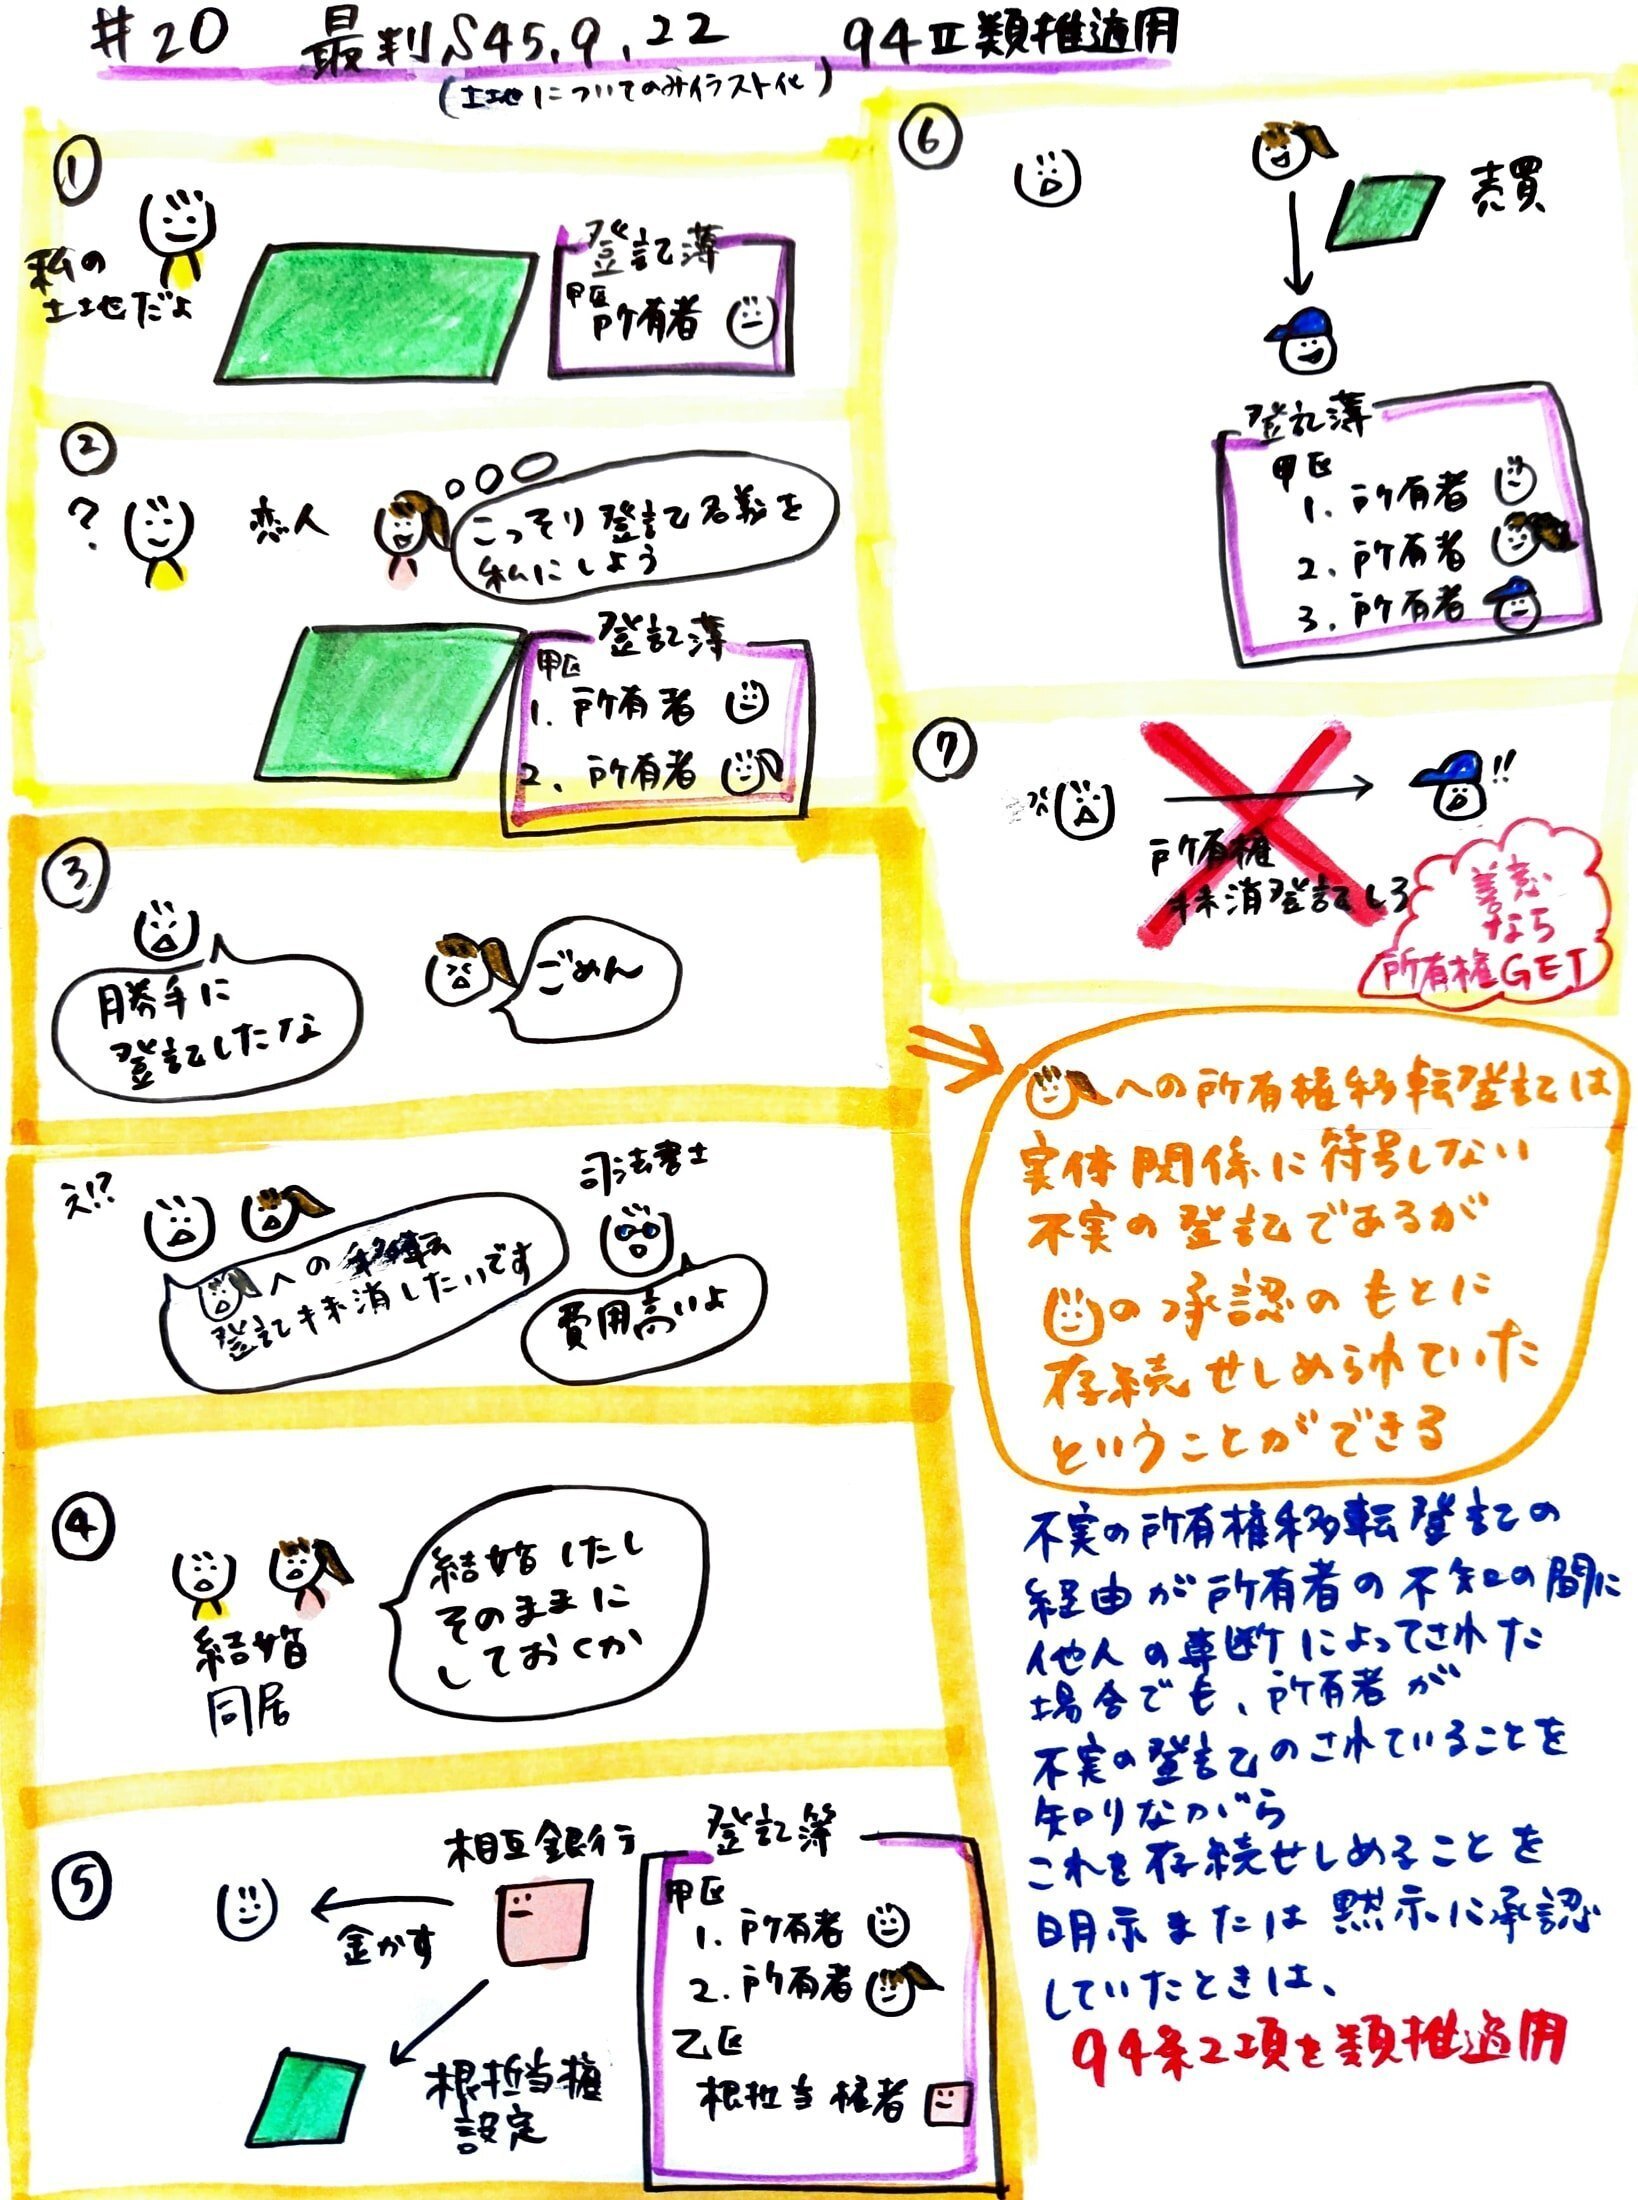 #20 最判S45.9.22 94Ⅱ類推適用
(土地についてのみイラスト化)
①
私の
土地だよ
登記簿
甲区
所有者
②
?
恋人
こっそり登記名義を
私にしよう
登記簿
甲区
1. 所有者
2. 所有者
③
勝手に
登記したな
ごめん
え!?
への移転
登記抹消したいです
司法書士
費用高いよ
④
結婚
同居
結婚したし
そのままに
しておくか
⑤
相互銀行
金かす
根担当権
設定
登記簿
甲区
1. 所有者
2. 所有者
乙区
根担当権者
⑥
売買
登記簿
甲区
1. 所有者
2. 所有者
3. 所有者
⑦
所有権
抹消登記しろ
!!
善意
なら
所有権GET
への所有権移転登記は
実体関係に符号しない
不実の登記であるが
の承認のもとに
存続せしめられていた
ということができる
不実の所有権移転登記の
経由が所有者の不知の間に
他人の専断によってされた
場合でも、所有者が
不実の登記のされていることを
知りながら
これを存続せしめることを
明示または黙示に承認
していたときは、
94条2項を類推適用